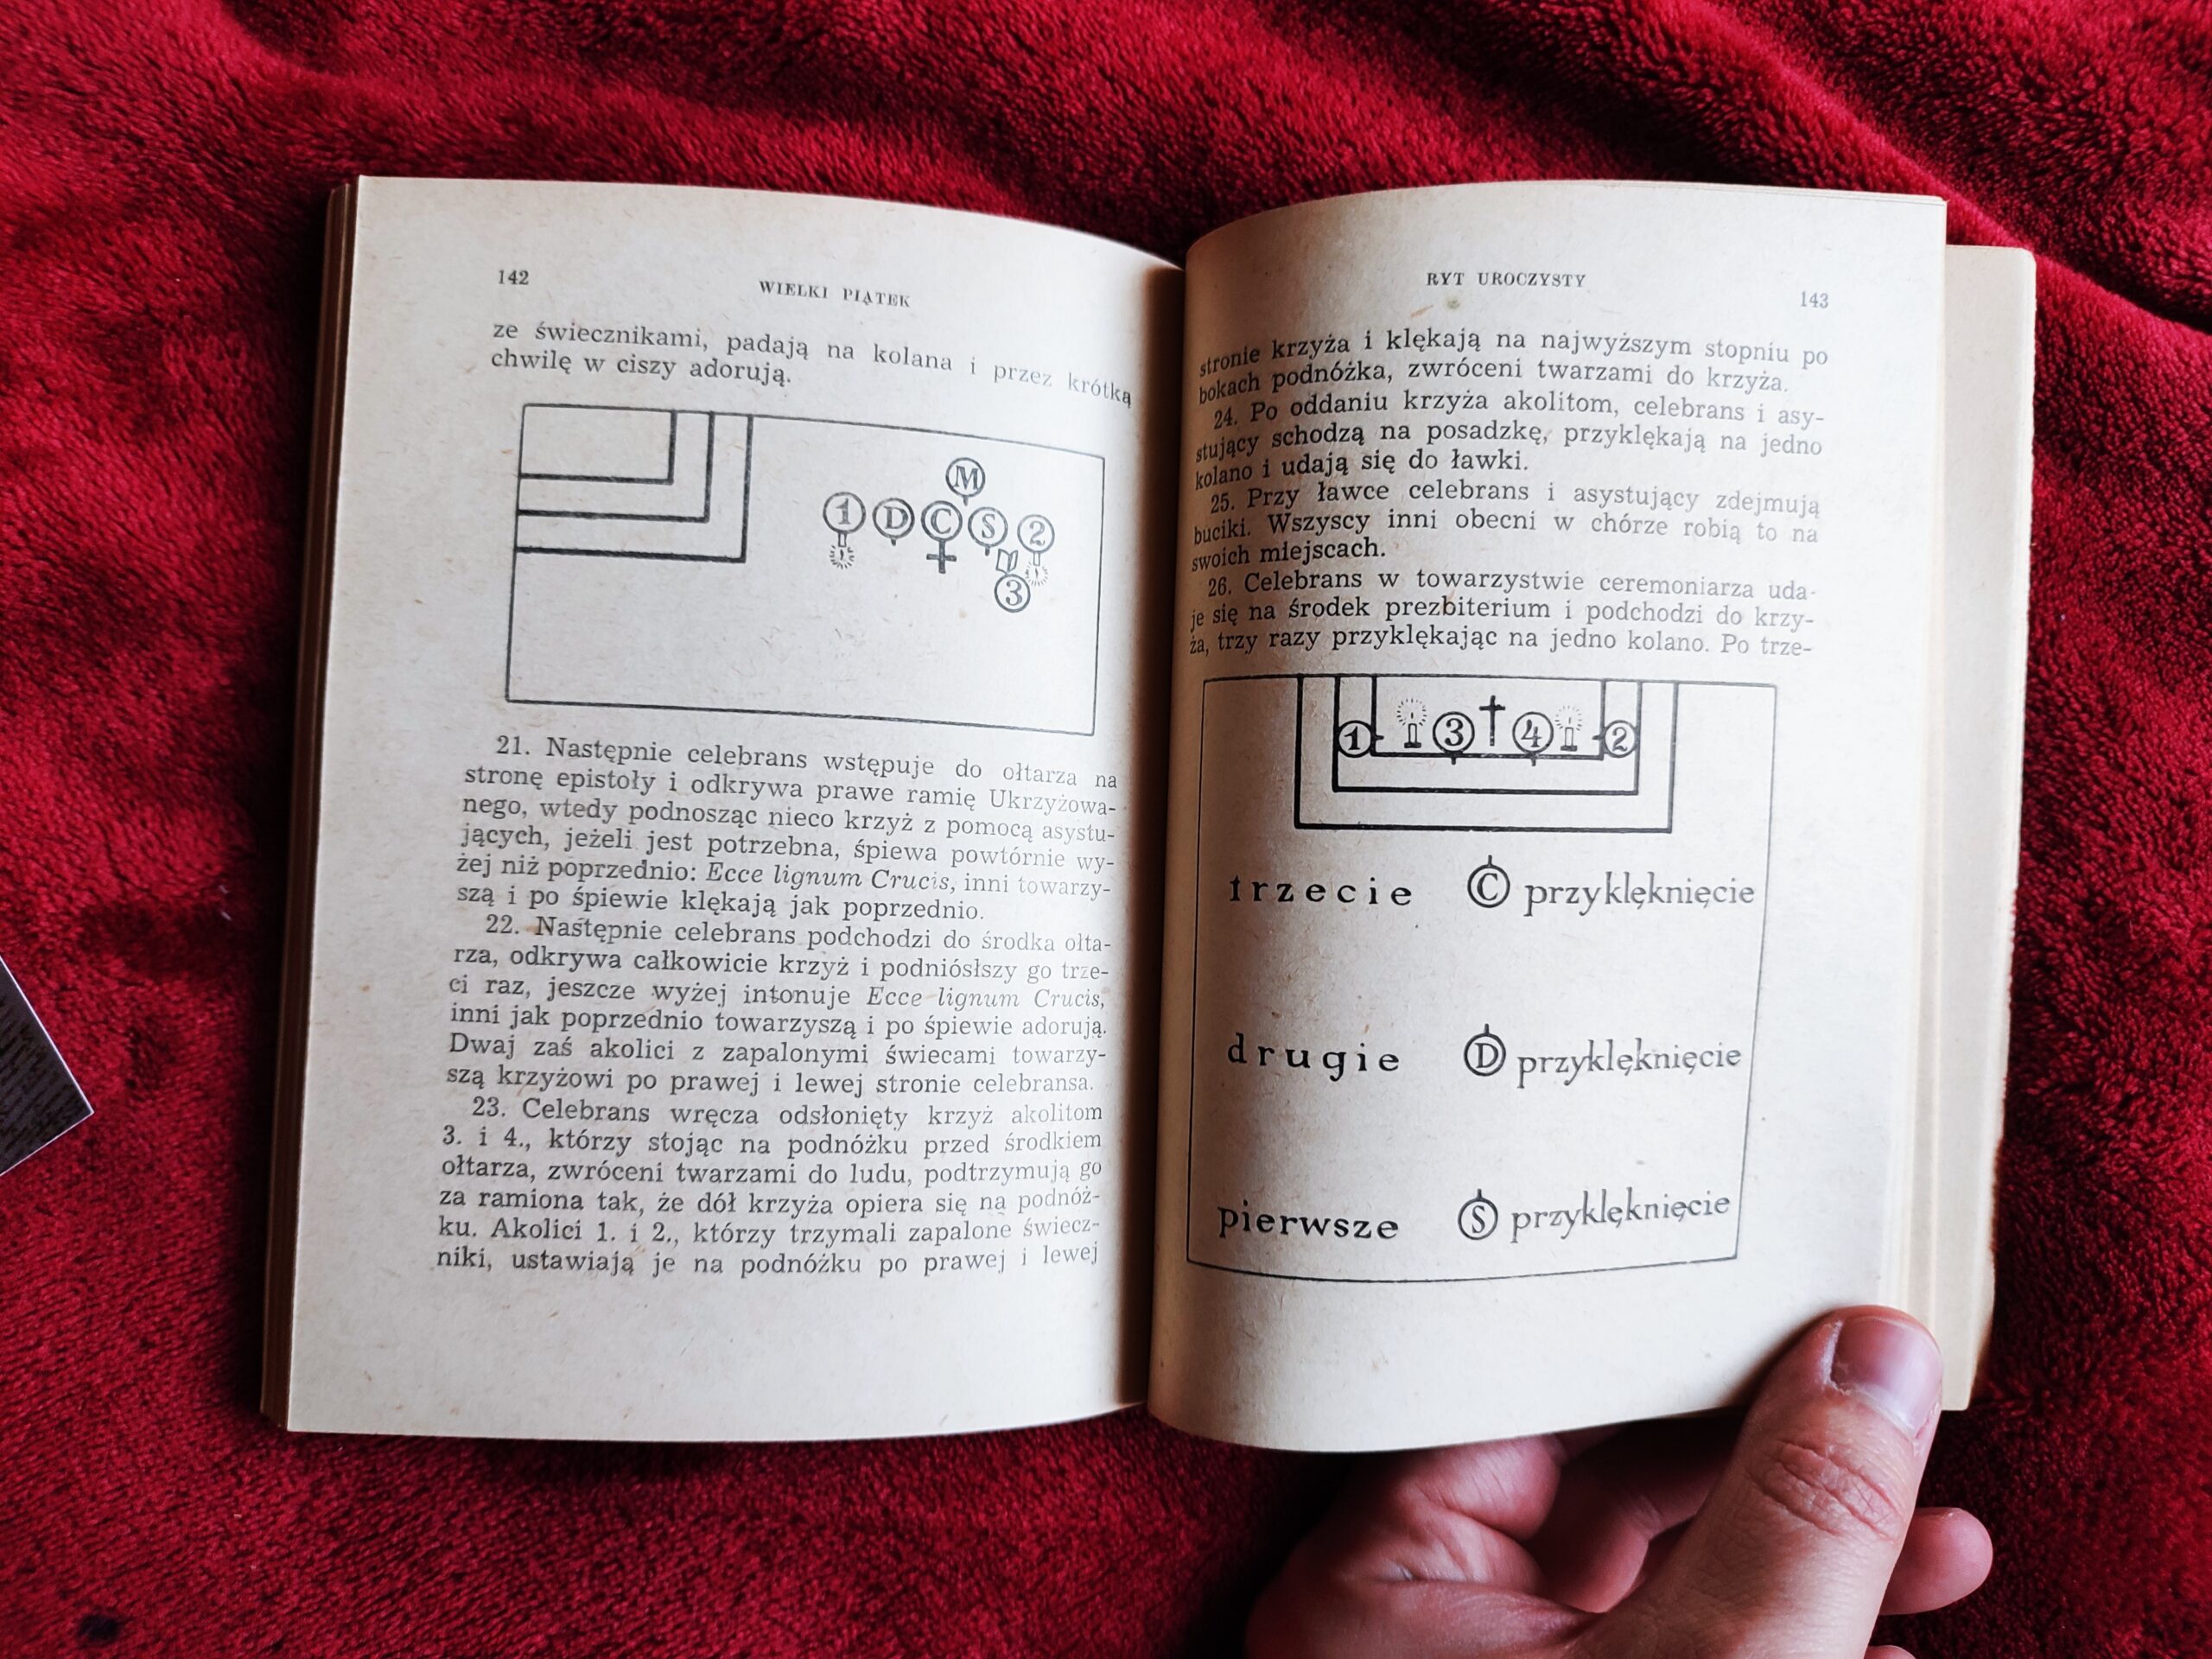 142
WIELKI PIĄTEK
ze świecznikami, padają na kolana i przez krótką
chwilę w ciszy adorują.
M
1 D C S 2
3
21. Następnie celebrans wstępuje do ołtarza na
stronę epistoły i odkrywa prawe ramię Ukrzyżowa-
nego, wtedy podnosząc nieco krzyż z pomocą asystu-
jących, jeżeli jest potrzebna, śpiewa powtórnie wy-
żej niż poprzednio: Ecce lignum Crucis, inni towarzy-
szą i po śpiewie klękają jak poprzednio.
22. Następnie celebrans podchodzi do środka ołta-
rza, odkrywa całkowicie krzyż i podniósłszy go trze-
ci raz, jeszcze wyżej intonuje Ecce lignum Crucis,
inni jak poprzednio towarzyszą i po śpiewie adorują.
Dwaj zaś akolici z zapalonymi świecami towarzy-
szą krzyżowi po prawej i lewej stronie celebransa.
23. Celebrans wręcza odsłonięty krzyż akolitom
3. i 4., którzy stojąc na podnóżku przed środkiem
ołtarza, zwróceni twarzami do ludu, podtrzymują go
za ramiona tak, że dół krzyża opiera się na podnóż-
ku. Akolici 1. i 2., którzy trzymali zapalone świecz-
niki, ustawiają je na podnóżku po prawej i lewej
RYT UROCZYSTY
143
stronie krzyża i klękają na najwyższym stopniu po
bokach podnóżka, zwróceni twarzami do krzyża.
24. Po oddaniu krzyża akolitom, celebrans i asy-
stujący schodzą na posadzkę, przyklękają na jedno
kolano i udają się do ławki.
25. Przy ławce celebrans i asystujący zdejmują
buciki. Wszyscy inni obecni w chórze robią to na
swoich miejscach.
26. Celebrans w towarzystwie ceremoniarza uda-
je się na środek prezbiterium i podchodzi do krzy-
ża, trzy razy przyklękając na jedno kolano. Po trze-
1 3 4 2
trzecie C przyklęknięcie
drugie D przyklęknięcie
pierwsze S przyklęknięcie